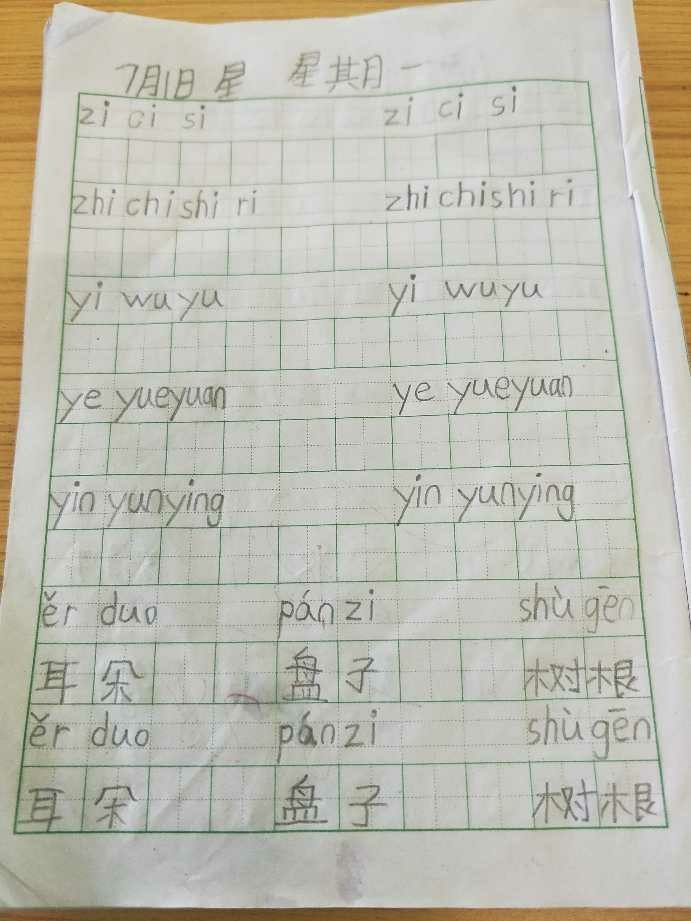 7月1日 星 星其月一
zi ci si zi ci si
zhi chi shi ri zhi chi shi ri
yi wu yu yi wu yu
ye yue yuan ye yue yuan
yin yun ying yin yun ying
ěr duo pán zi shù gēn
耳朵 盘子 树根
ěr duo pán zi shù gēn
耳朵 盘子 树根